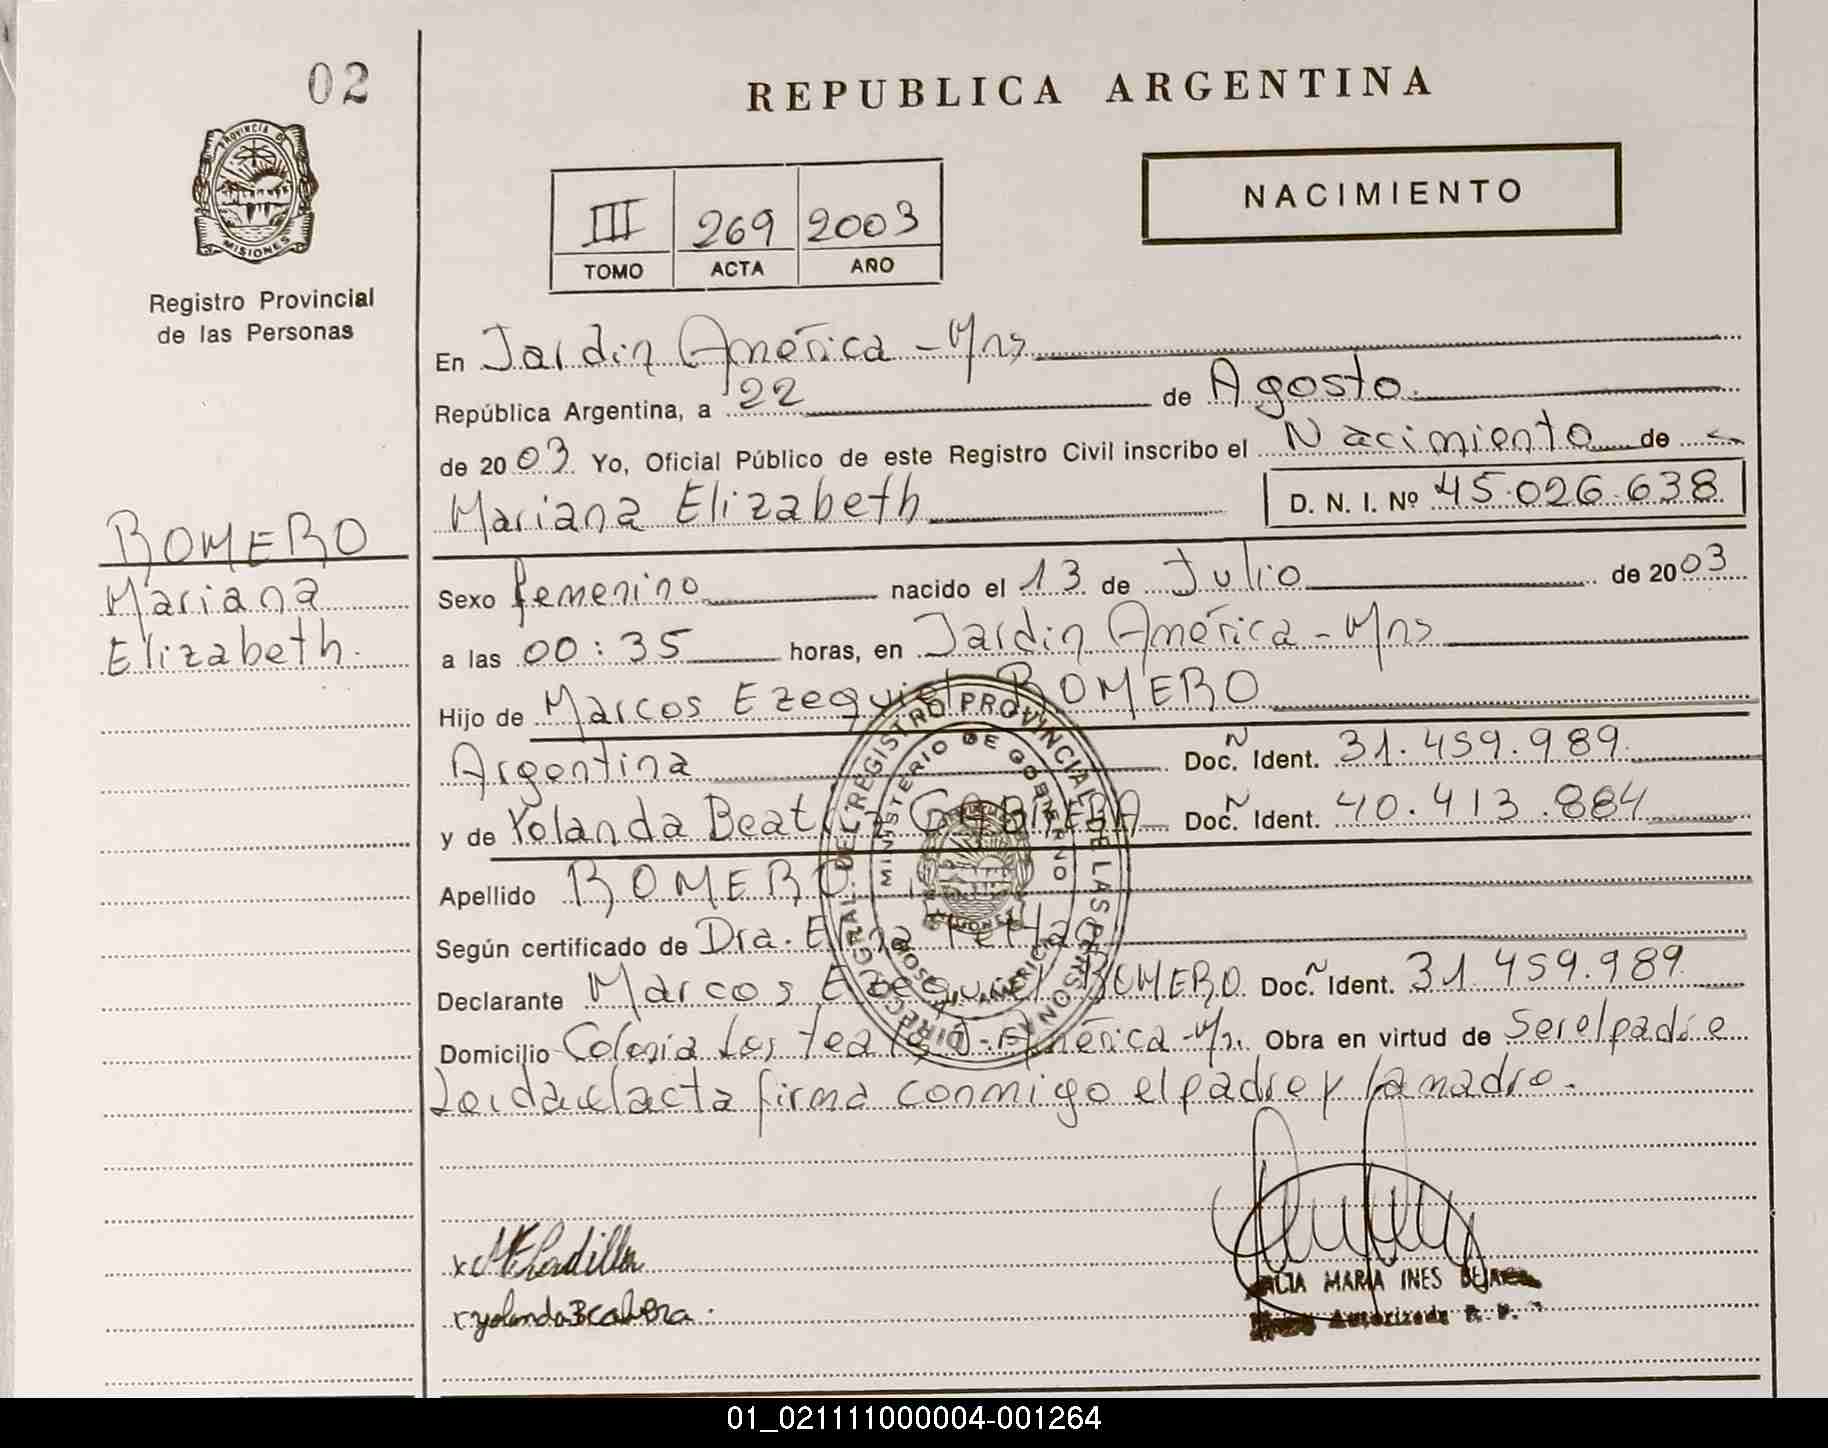 02
REPUBLICA ARGENTINA
PROVINCIA DE
MISIONES
Registro Provincial
de las Personas
NACIMIENTO
III 269 2003
TOMO ACTA AÑO
En Jardin América - Mns
República Argentina, a 22 de Agosto
de 2003 Yo, Oficial Público de este Registro Civil inscribo el Nacimiento de
Mariana Elizabeth D. N. I. Nº 45.026.638
ROMERO
Mariana
Elizabeth.
Sexo femenino nacido el 13 de Julio de 2003
a las 00:35 horas, en Jardin América - Mns
Hijo de Marcos Ezequiel ROMERO
Argentina Doc. Ident. 31.459.989
y de Yolanda Beatriz Doc. Ident. 40.413.884
Apellido ROMERO
Según certificado de Dra.
Declarante Marcos Ezequiel ROMERO Doc. Ident. 31.459.989
Domicilio Colonia Los América - Obra en virtud de Ser el padre
Leida el acta firma conmigo el padre y la madre.
DIREC. GRAL. DEL REGISTRO PROVINCIAL DE LAS PERSONAS
MINISTERIO DE GOBIERNO
MARIA INES
Autorizada R. P.
01_021111000004-001264